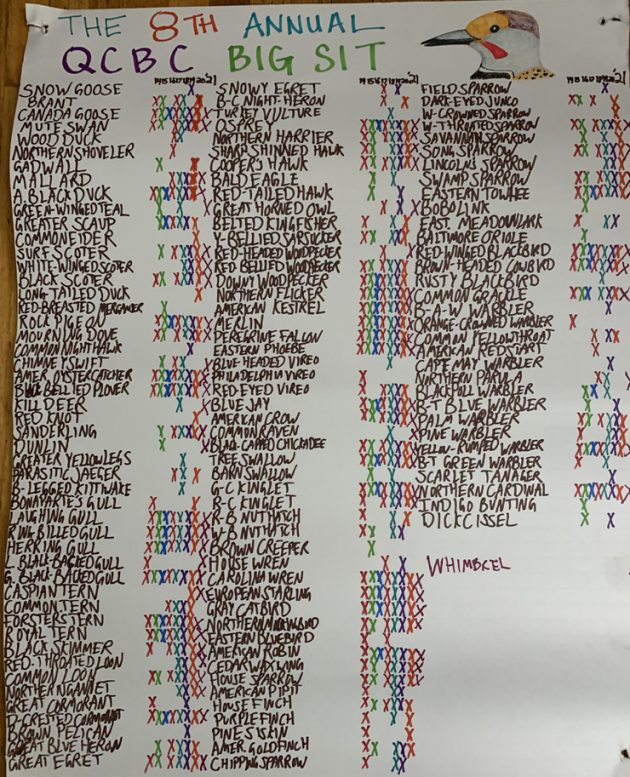 THE 8TH ANNUAL
QCBC BIG SIT
SNOW GOOSE
BRANT
CANADA GOOSE
MUTE SWAN
WOOD DUCK
NORTHERN SHOVELER
GADWALL
MALLARD
A. BLACK DUCK
GREEN-WINGED TEAL
GREATER SCAUP
COMMON EIDER
SURF SCOTER
WHITE-WINGED SCOTER
BLACK SCOTER
LONG TAILED DUCK
RED-BREASTED MERGANSER
ROCK PIGEON
MOURNING DOVE
COMMON NIGHTHAWK
CHIMNEY SWIFT
AMER. OYSTERCATCHER
BELLIED PLOVER
KILLDEER
RED KNOT
SANDERLING
DUNLIN
GREATER YELLOWLEGS
PARASITIC JAEGER
B-LEGGED KITTIWAKE
BONAPARTE'S GULL
LAUGHING GULL
RING BILLED GULL
HERRING GULL
L. BLACK-BACKED GULL
G. BLACK-BACKED GULL
CASPIAN TERN
COMMON TERN
FORSTERS TERN
ROYAL TERN
BLACK SKIMMER
RED-THROATED LOON
COMMON LOON
NORTHERN GANNET
GREAT CORMORANT
D-CRESTED CORMORANT
BRAWN PELICAN
GREAT BLUE HERON
GREAT EGRET
SNOWY EGRET
B-C NIGHT-HERON
TURKEY VULTURE
OSPREY
NORTHERN HARRIER
SHARP SHINNED HAWK
COOPER'S HAWK
BALD EAGLE
RED TAILED HAWK
GREAT HORNED OWL
BELTED KINGFISHER
Y-BELLIED SAPSUCKER
RED-HEADED WOODPECKER
RED BELLIED WOODPECKER
DOWNY WOODPECKER
NORTHERN FLICKER
AMERICAN KESTREL
MERLIN
PEREGRINE FALLON
EASTERN PHOEBE
BLUE HEADED VIREO
PHILADELPHIA VIREO
RED EYED VIREO
BLUE JAY
AMERICAN CROW
COMMON RAVEN
BLACK-CAPPED CHICKADEE
TREE SWALLOW
BARN SWALLOW
G-C KINGLET
R-C KINGLET
R-B NUTHATCH
W-B NUTHATCH
BROWN CREEPER
HOUSE WREN
CAROLINA WREN
EUROPEAN STARLING
GRAY CATBIRD
NORTHERN MOCKINGBIRD
EASTERN BLUEBIRD
AMERICAN ROBIN
CEDAR WAXWING
HOUSE SPARROW
AMERICAN PIPIT
HOUSE FINCH
PURPLE FINCH
PINE SISKIN
AMER. GOLDFINCH
CHIPPING SPARROW
FIELD SPARROW
DARK-EYED JUNCO
W-CROWNED SPARROW
W-THROATED SPARROW
SAVANNAH SPARROW
SONG SPARROW
LINCOLN'S SPARROW
SWAMP SPARROW
EASTERN TOWHEE
BOBOLINK
EAST. MEADOWLARK
BALTIMORE ORIOLE
RED-WINGED BLACKBIRD
BROWN-HEADED COWBIRD
RUSTY BLACKBIRD
COMMON GRACKLE
B-A-W WARBLER
ORANGE-CROWNED WARBLER
COMMON YELLOWTHROAT
AMERICAN REDSTART
CAPE MAY WARBLER
NORTHERN PARULA
BLACKPOLL WARBLER
B-T BLUE WARBLER
PALM WARBLER
PINE WARBLER
YELLOW-RUMPED WARBLER
B-T GREEN WARBLER
SCARLET TANAGER
NORTHERN CARDINAL
INDIGO BUNTING
DICKCISSEL
WHIMBREL